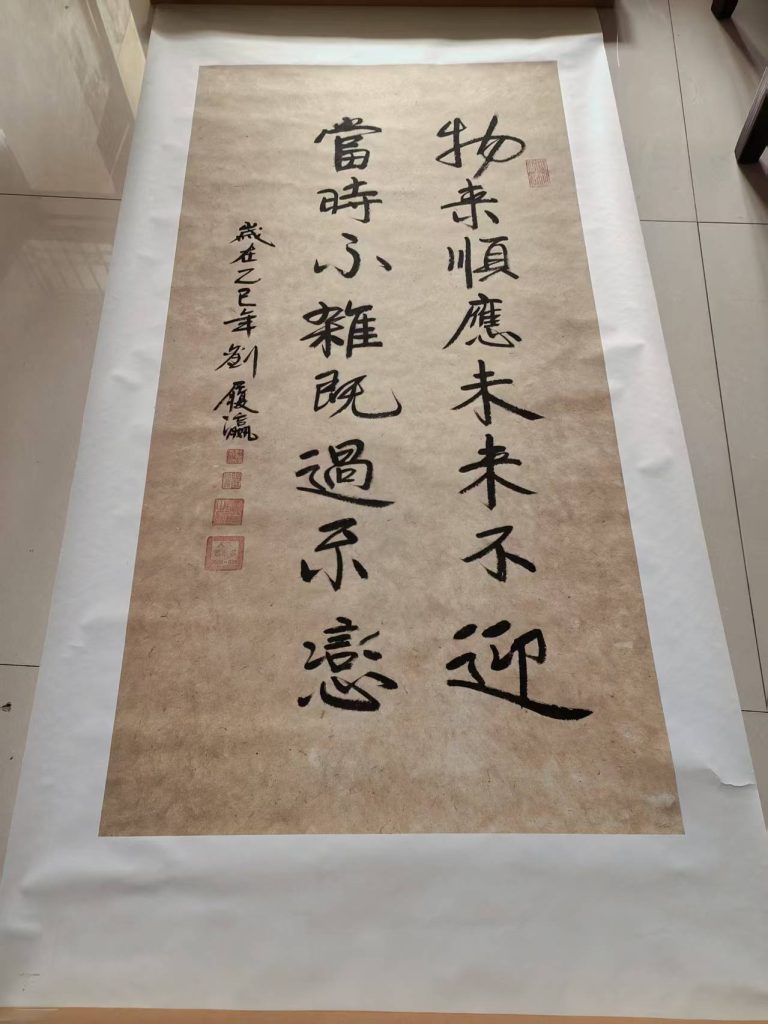 物来順應未来不迎
當時不雜既過不戀
歲在乙巳年劉履瀛